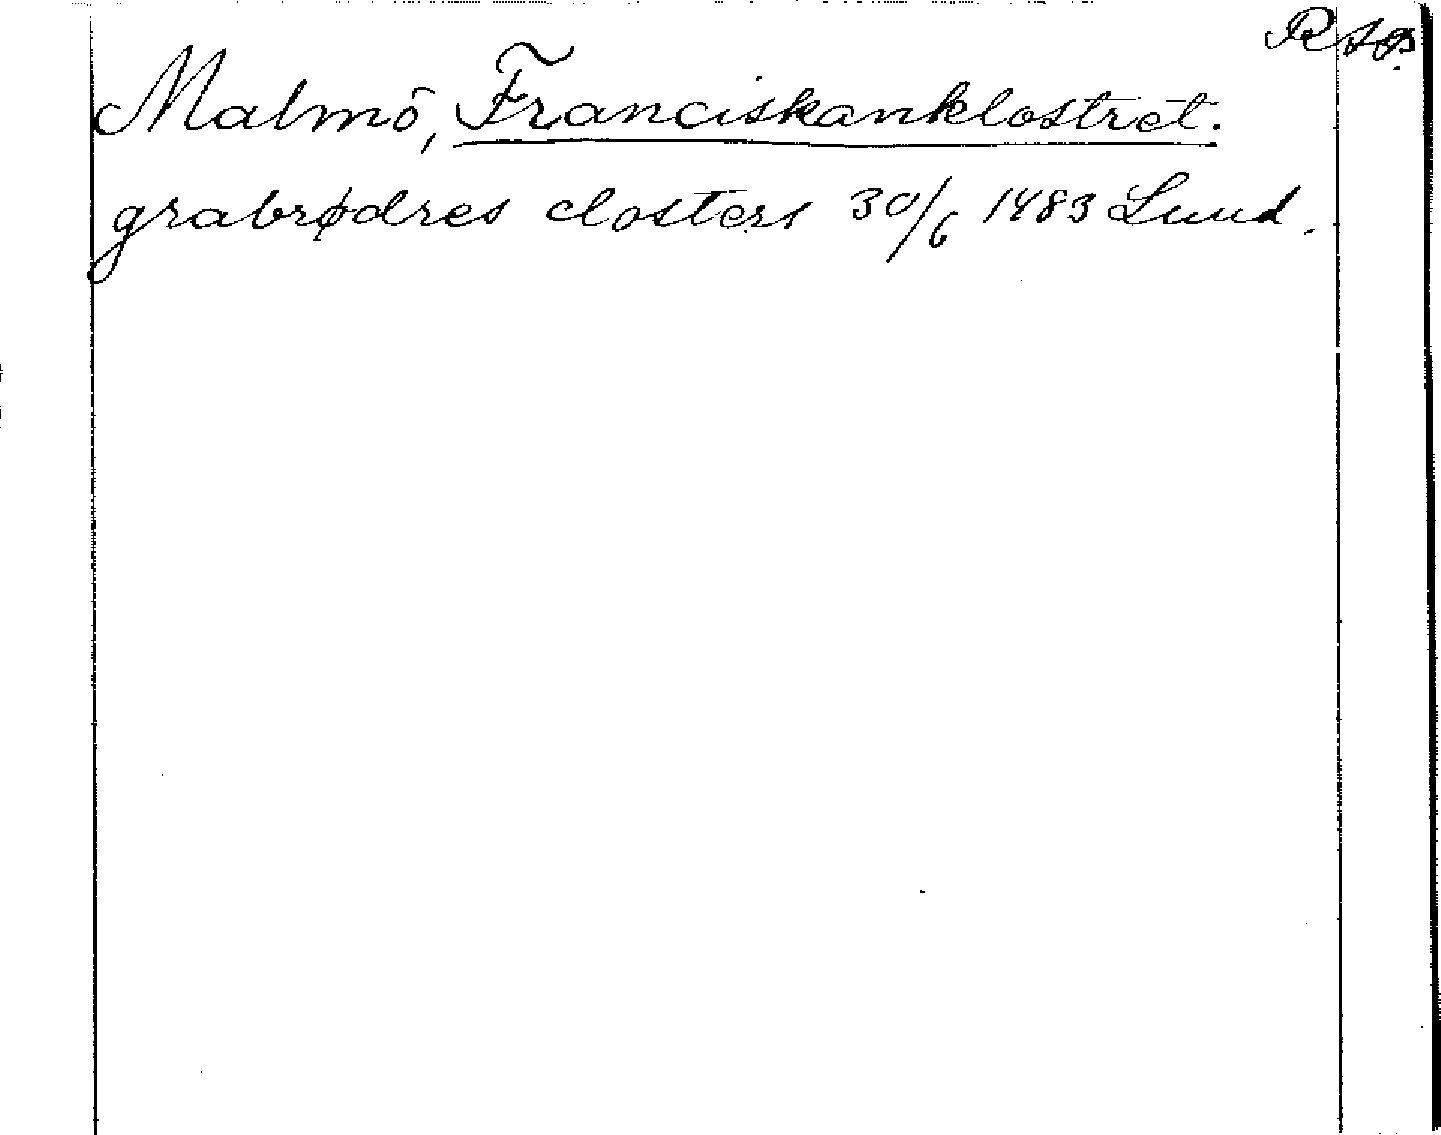 Malmö, Franciskanklostret.
grabrødres closters 30/6 1483 Lund.